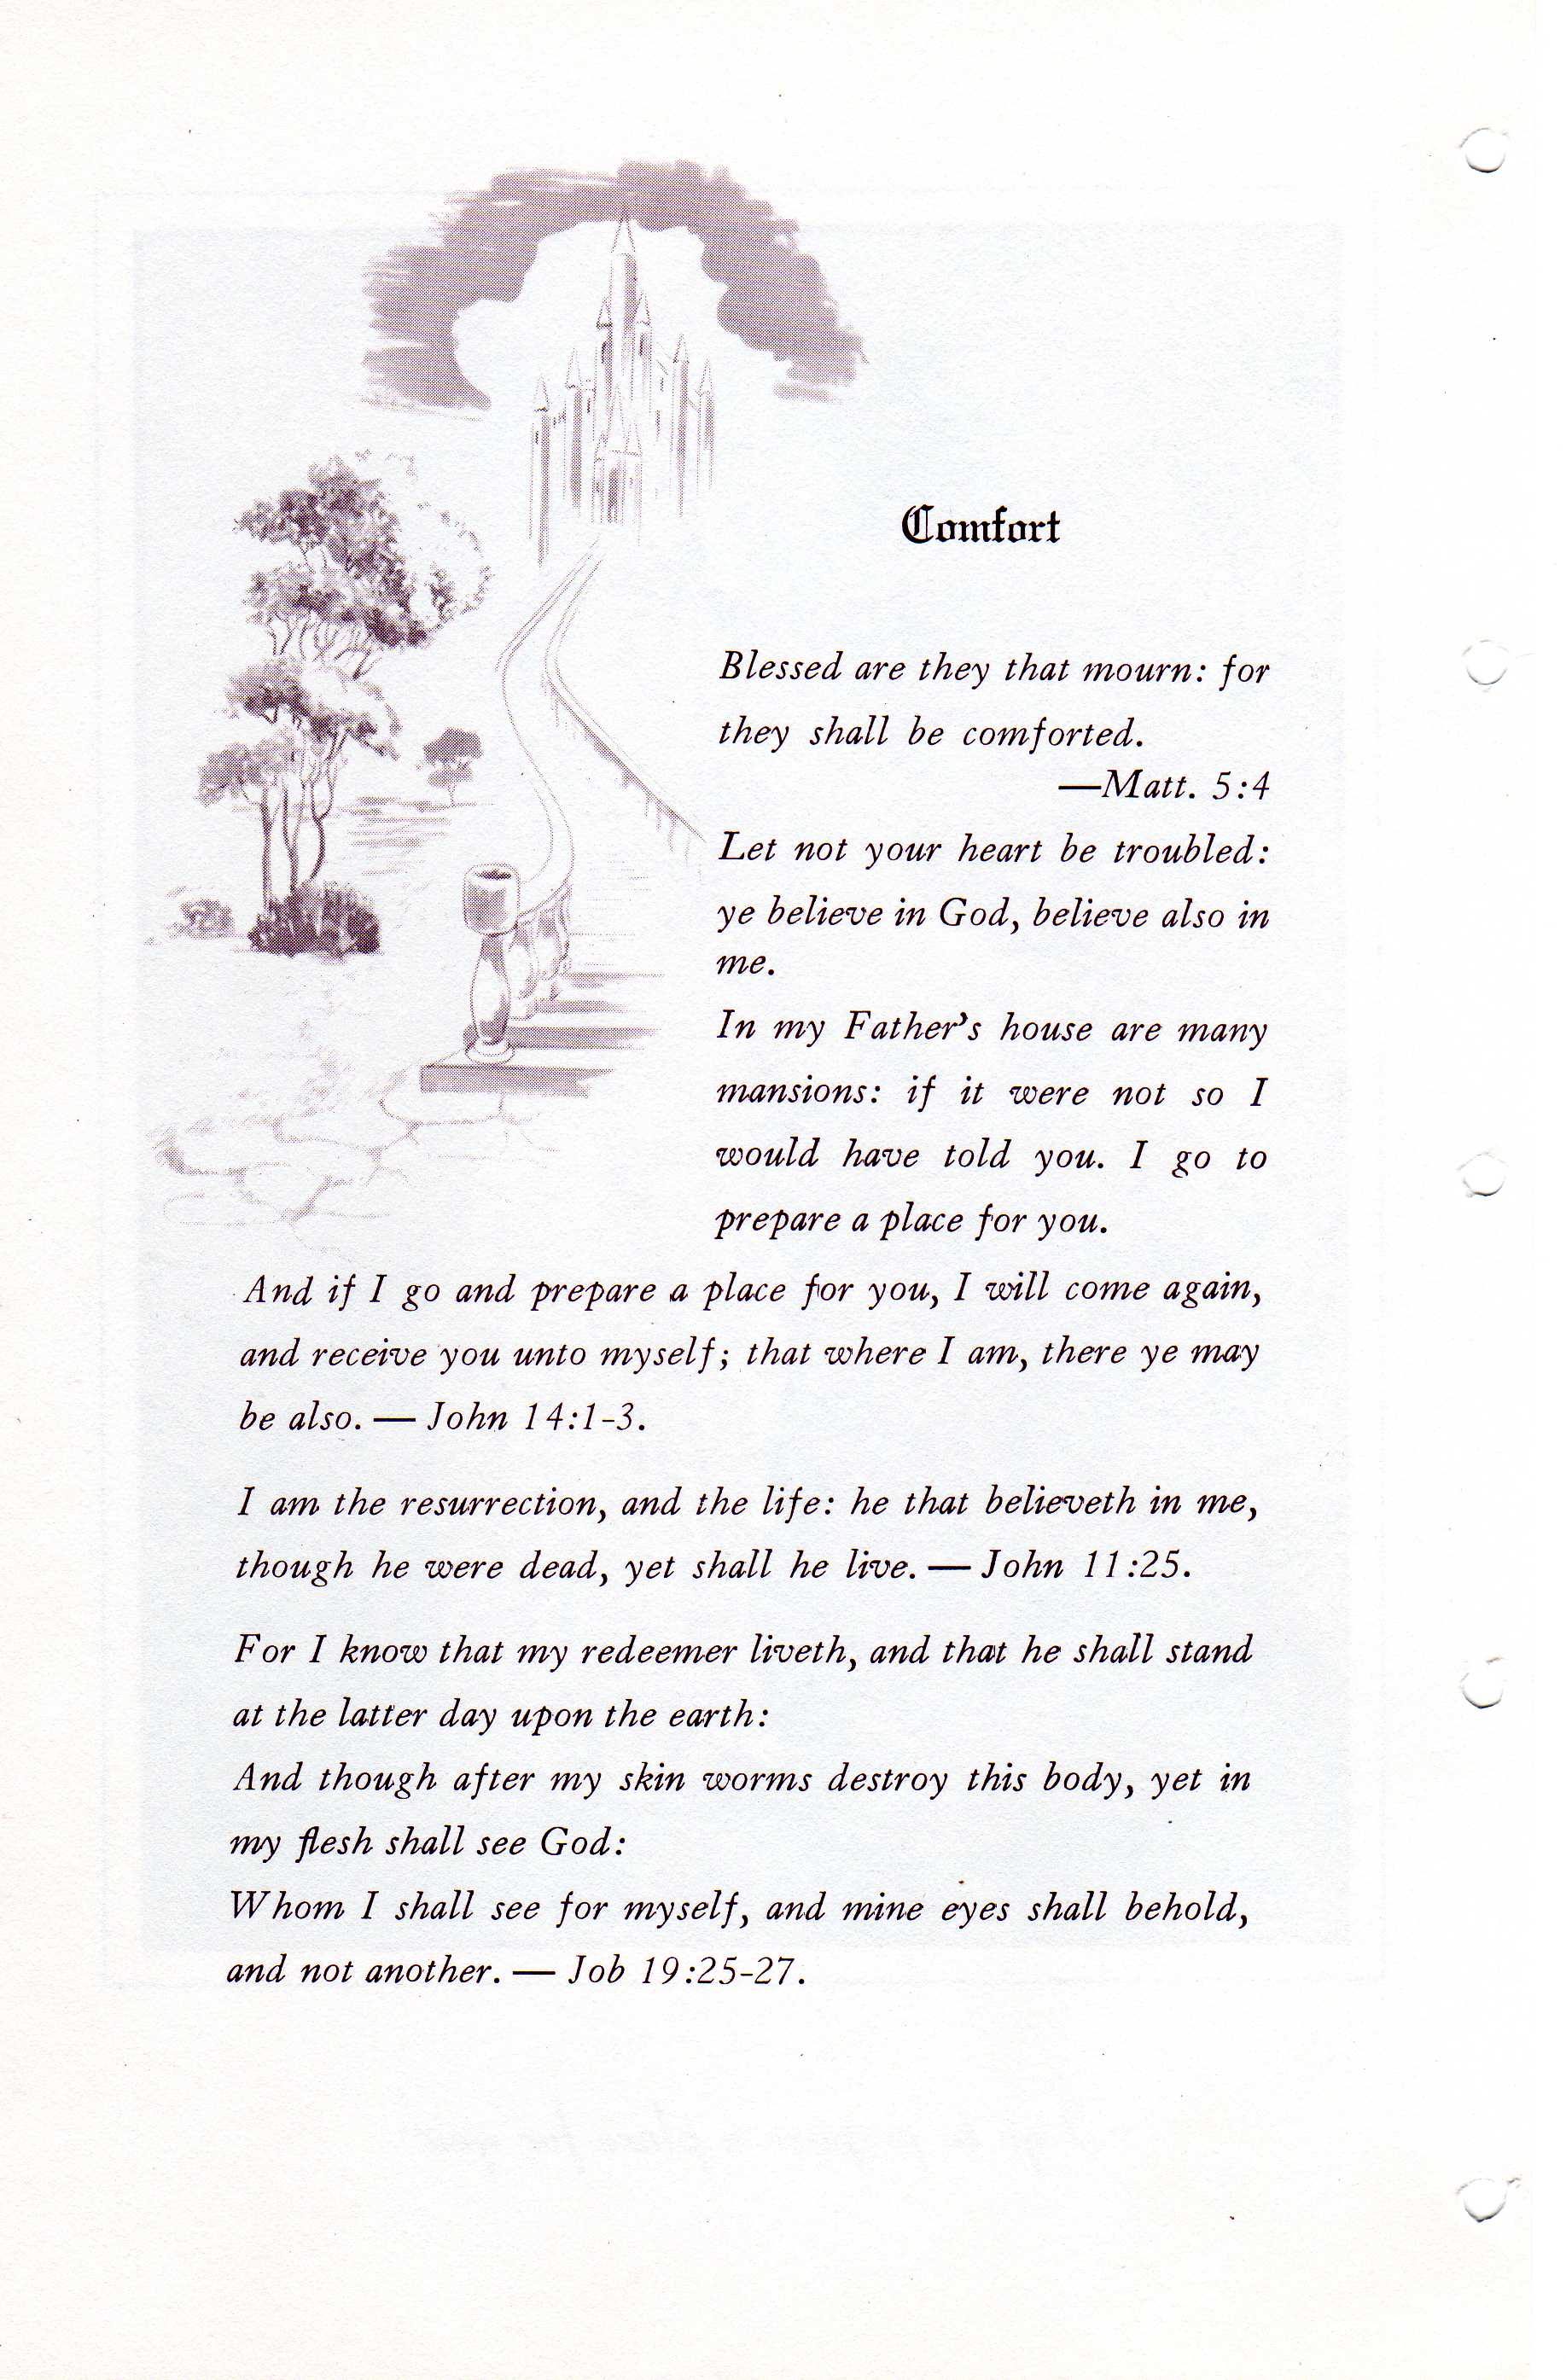 Comfort
Blessed are they that mourn: for
they shall be comforted.
—Matt. 5:4
Let not your heart be troubled:
ye believe in God, believe also in
me.
In my Father's house are many
mansions: if it were not so I
would have told you. I go to
prepare a place for you.
And if I go and prepare a place for you, I will come again,
and receive you unto myself; that where I am, there ye may
be also. — John 14:1-3.
I am the resurrection, and the life: he that believeth in me,
though he were dead, yet shall he live. — John 11:25.
For I know that my redeemer liveth, and that he shall stand
at the latter day upon the earth:
And though after my skin worms destroy this body, yet in
my flesh shall see God:
Whom I shall see for myself, and mine eyes shall behold,
and not another. — Job 19:25-27.